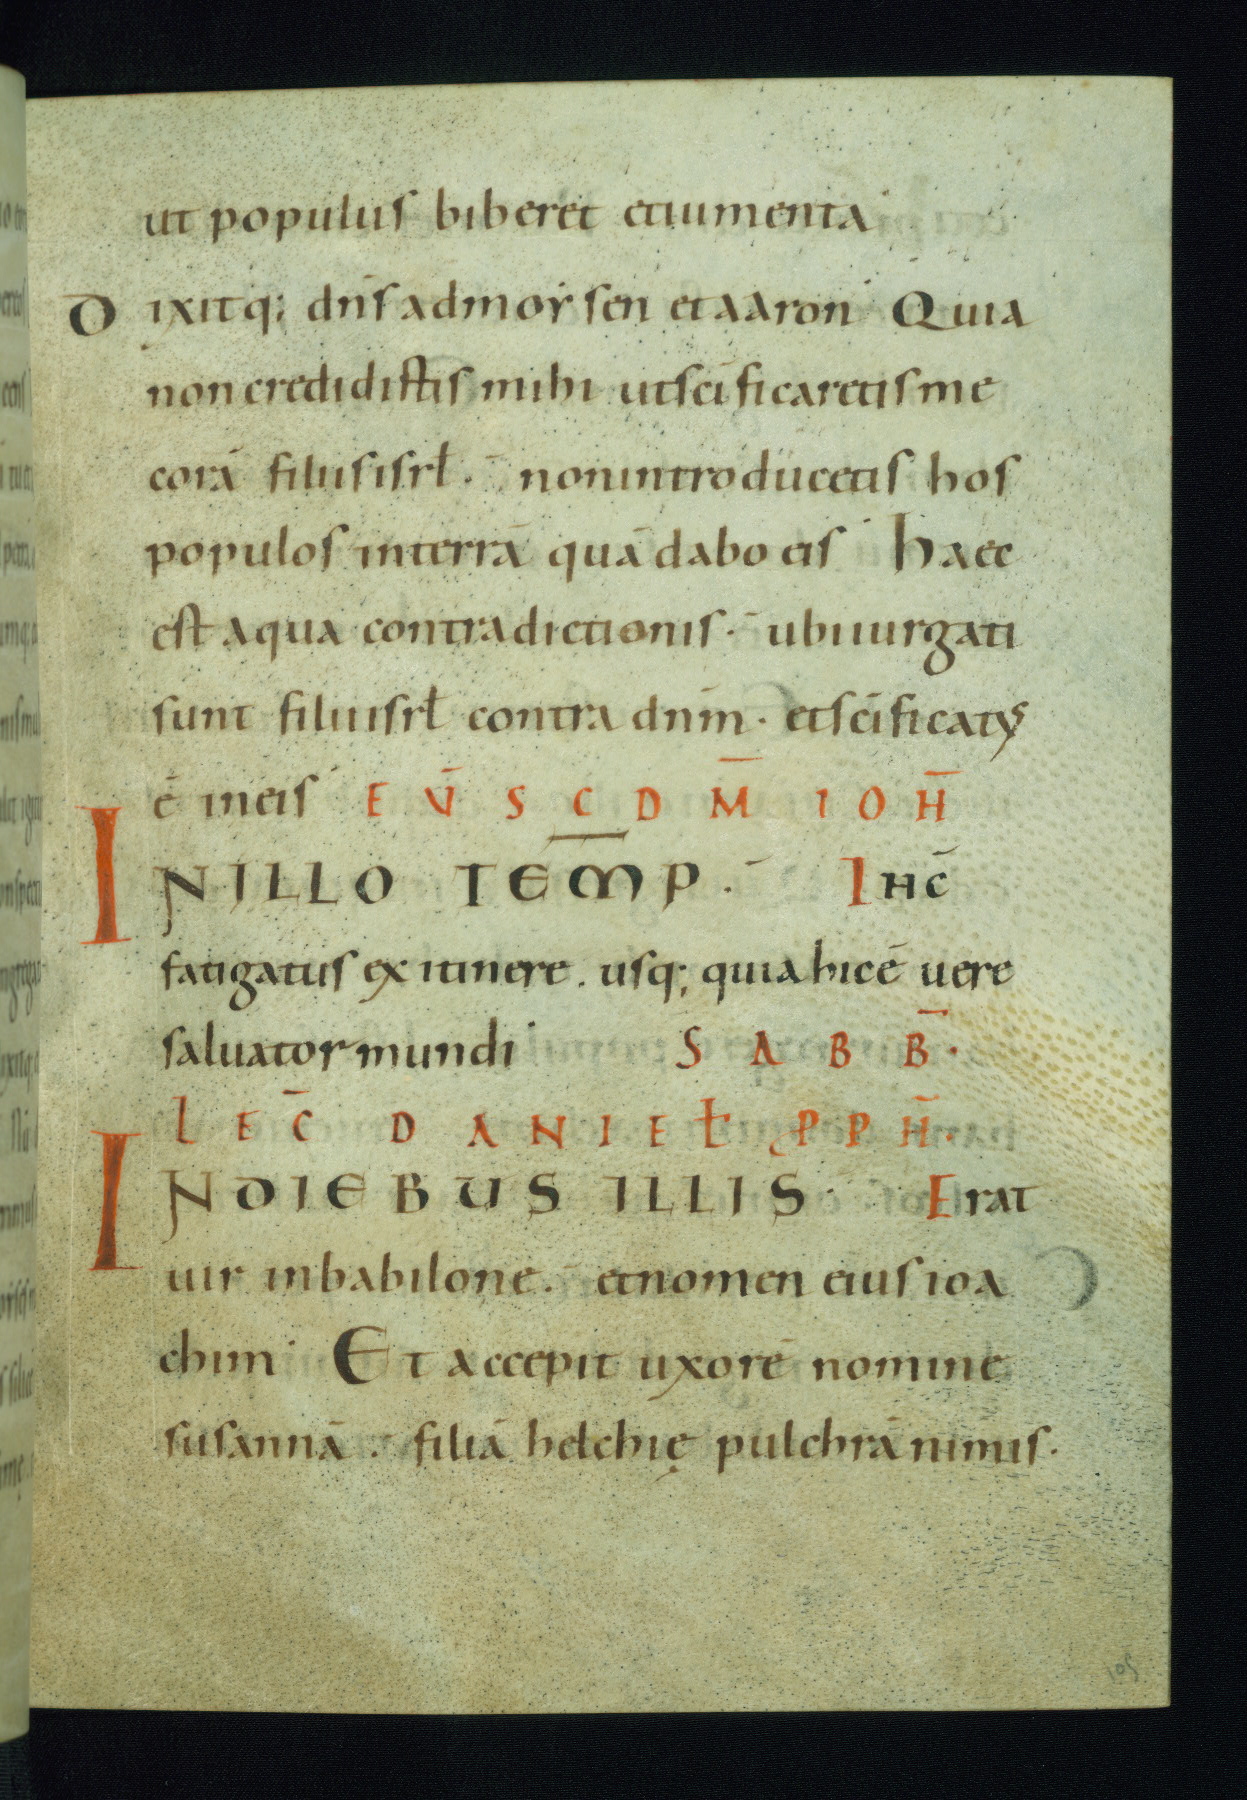 ut populus biberet etiumenta
Dixitq; dn̄s admoysen etaaron Quia
non credidistis mihi utsc̄ificaretisme
corā filiisisrl̄. nonintroducetis hos
populos interrā quā dabo eis haec
est aqua contradictionis. ubiiurgati
sunt filiiisrl̄ contra dn̄m. etsc̄ificatus
ē ineis EV̄ SCDM̄ IOH̄
INILLO TEM̄P. Ihc̄
fatigatus ex itinere. usq; quia hicē uere
saluator mundi SABB̄.
LEC̄ DANIEL̄ PPH̄.
INDIEBUS ILLIS. Erat
uir inbabilone. etnomen eius ioa
chim Et accepit uxorē nomine
susannā. filiā helchię pulchrā nimis.
105